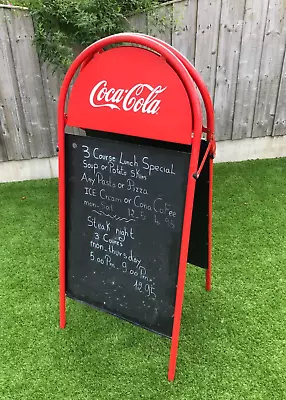 Coca-Cola
3 Course Lunch Special
Soup or Potato Skin
Any Pasta or Pizza
ICE Cream or Cona Coffee
mon-Sat 12-5 6.95
Steak night
3 Courses
mon-thursday
5.00Pm-9.00Pm
12.95